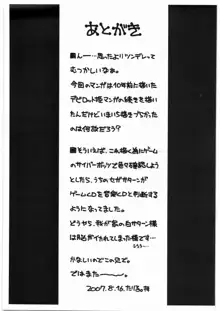 あとがき
■んー…思ったよりツンデレって
むつかしいなぁ。
今回のマンガは10年前に描いた
デビロット姫マンガの続きを描い
たんだけどいまいち姫をブちかった
のは何故だろう?
■そういえば、これ描く為にゲーム
のサイバーボッツで色々確認しよう
としたら、うちのセガサターンが
ゲームCDを音楽CDと判断する
ようになってました。
どうやら、我が家の白サターン様
は
かなしいのでこの辺で。
ではまた〜。
2007.8.16.